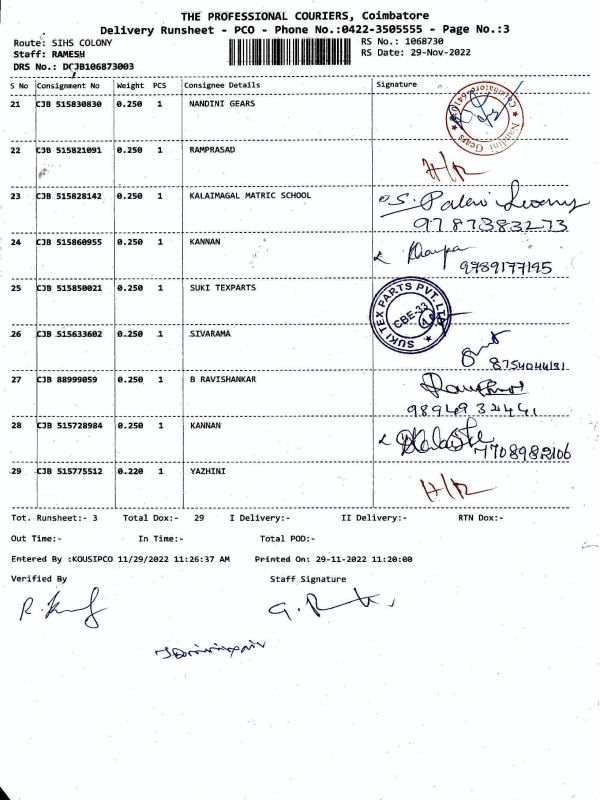 THE PROFESSIONAL COURIERS, Coimbatore
Delivery Runsheet - PCO - Phone No.:0422-3505555 - Page No.:3
Route: SIHS COLONY
RS No.: 1068730
Staff: RAMESH
RS Date: 29-Nov-2022
DRS No.: DCJB106873003
S No Consignment No Weight PCS Consignee Details Signature
21 CJB 515830830 0.250 1 NANDINI GEARS
Nandini Gears
22 CJB 515821091 0.250 1 RAMPRASAD
23 CJB 515828142 0.250 1 KALAIMAGAL MATRIC SCHOOL
9787383273
24 CJB 515860955 0.250 1 KANNAN
9789177195
25 CJB 515850021 0.250 1 SUKI TEXPARTS
SUKI TEX PARTS PVT. LTD.
CBE-33
26 CJB 515633602 0.250 1 SIVARAMA
27 CJB 88999059 0.250 1 B RAVISHANKAR
28 CJB 515728984 0.250 1 KANNAN
7708982106
29 CJB 515775512 0.220 1 YAZHINI
Tot. Runsheet:- 3 Total Dox:- 29 I Delivery:- II Delivery:- RTN Dox:-
Out Time:- In Time:- Total POD:-
Entered By :KOUSIPCO 11/29/2022 11:26:37 AM Printed On: 29-11-2022 11:20:00
Verified By Staff Signature